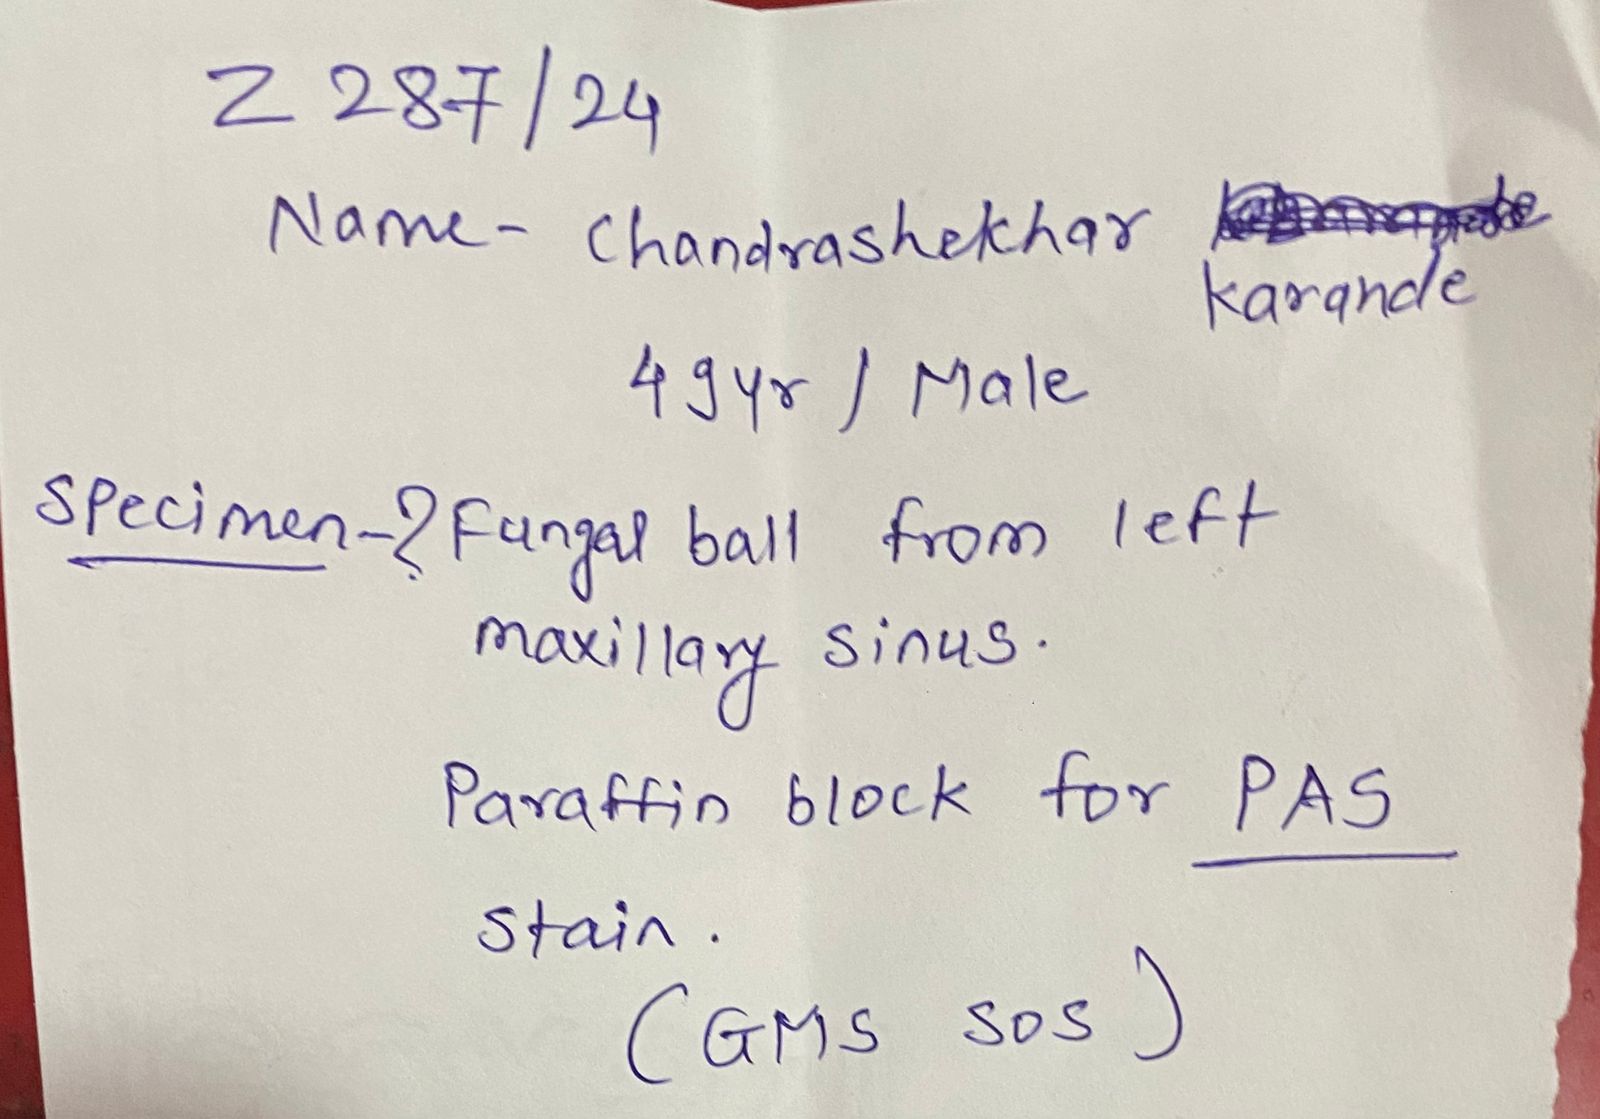 Z 287/24
Name - Chandrashekhar
Karande
49yr / Male
Specimen - ? Fungal ball from left
maxillary sinus.
Paraffin block for PAS
stain.
(GMS SOS)